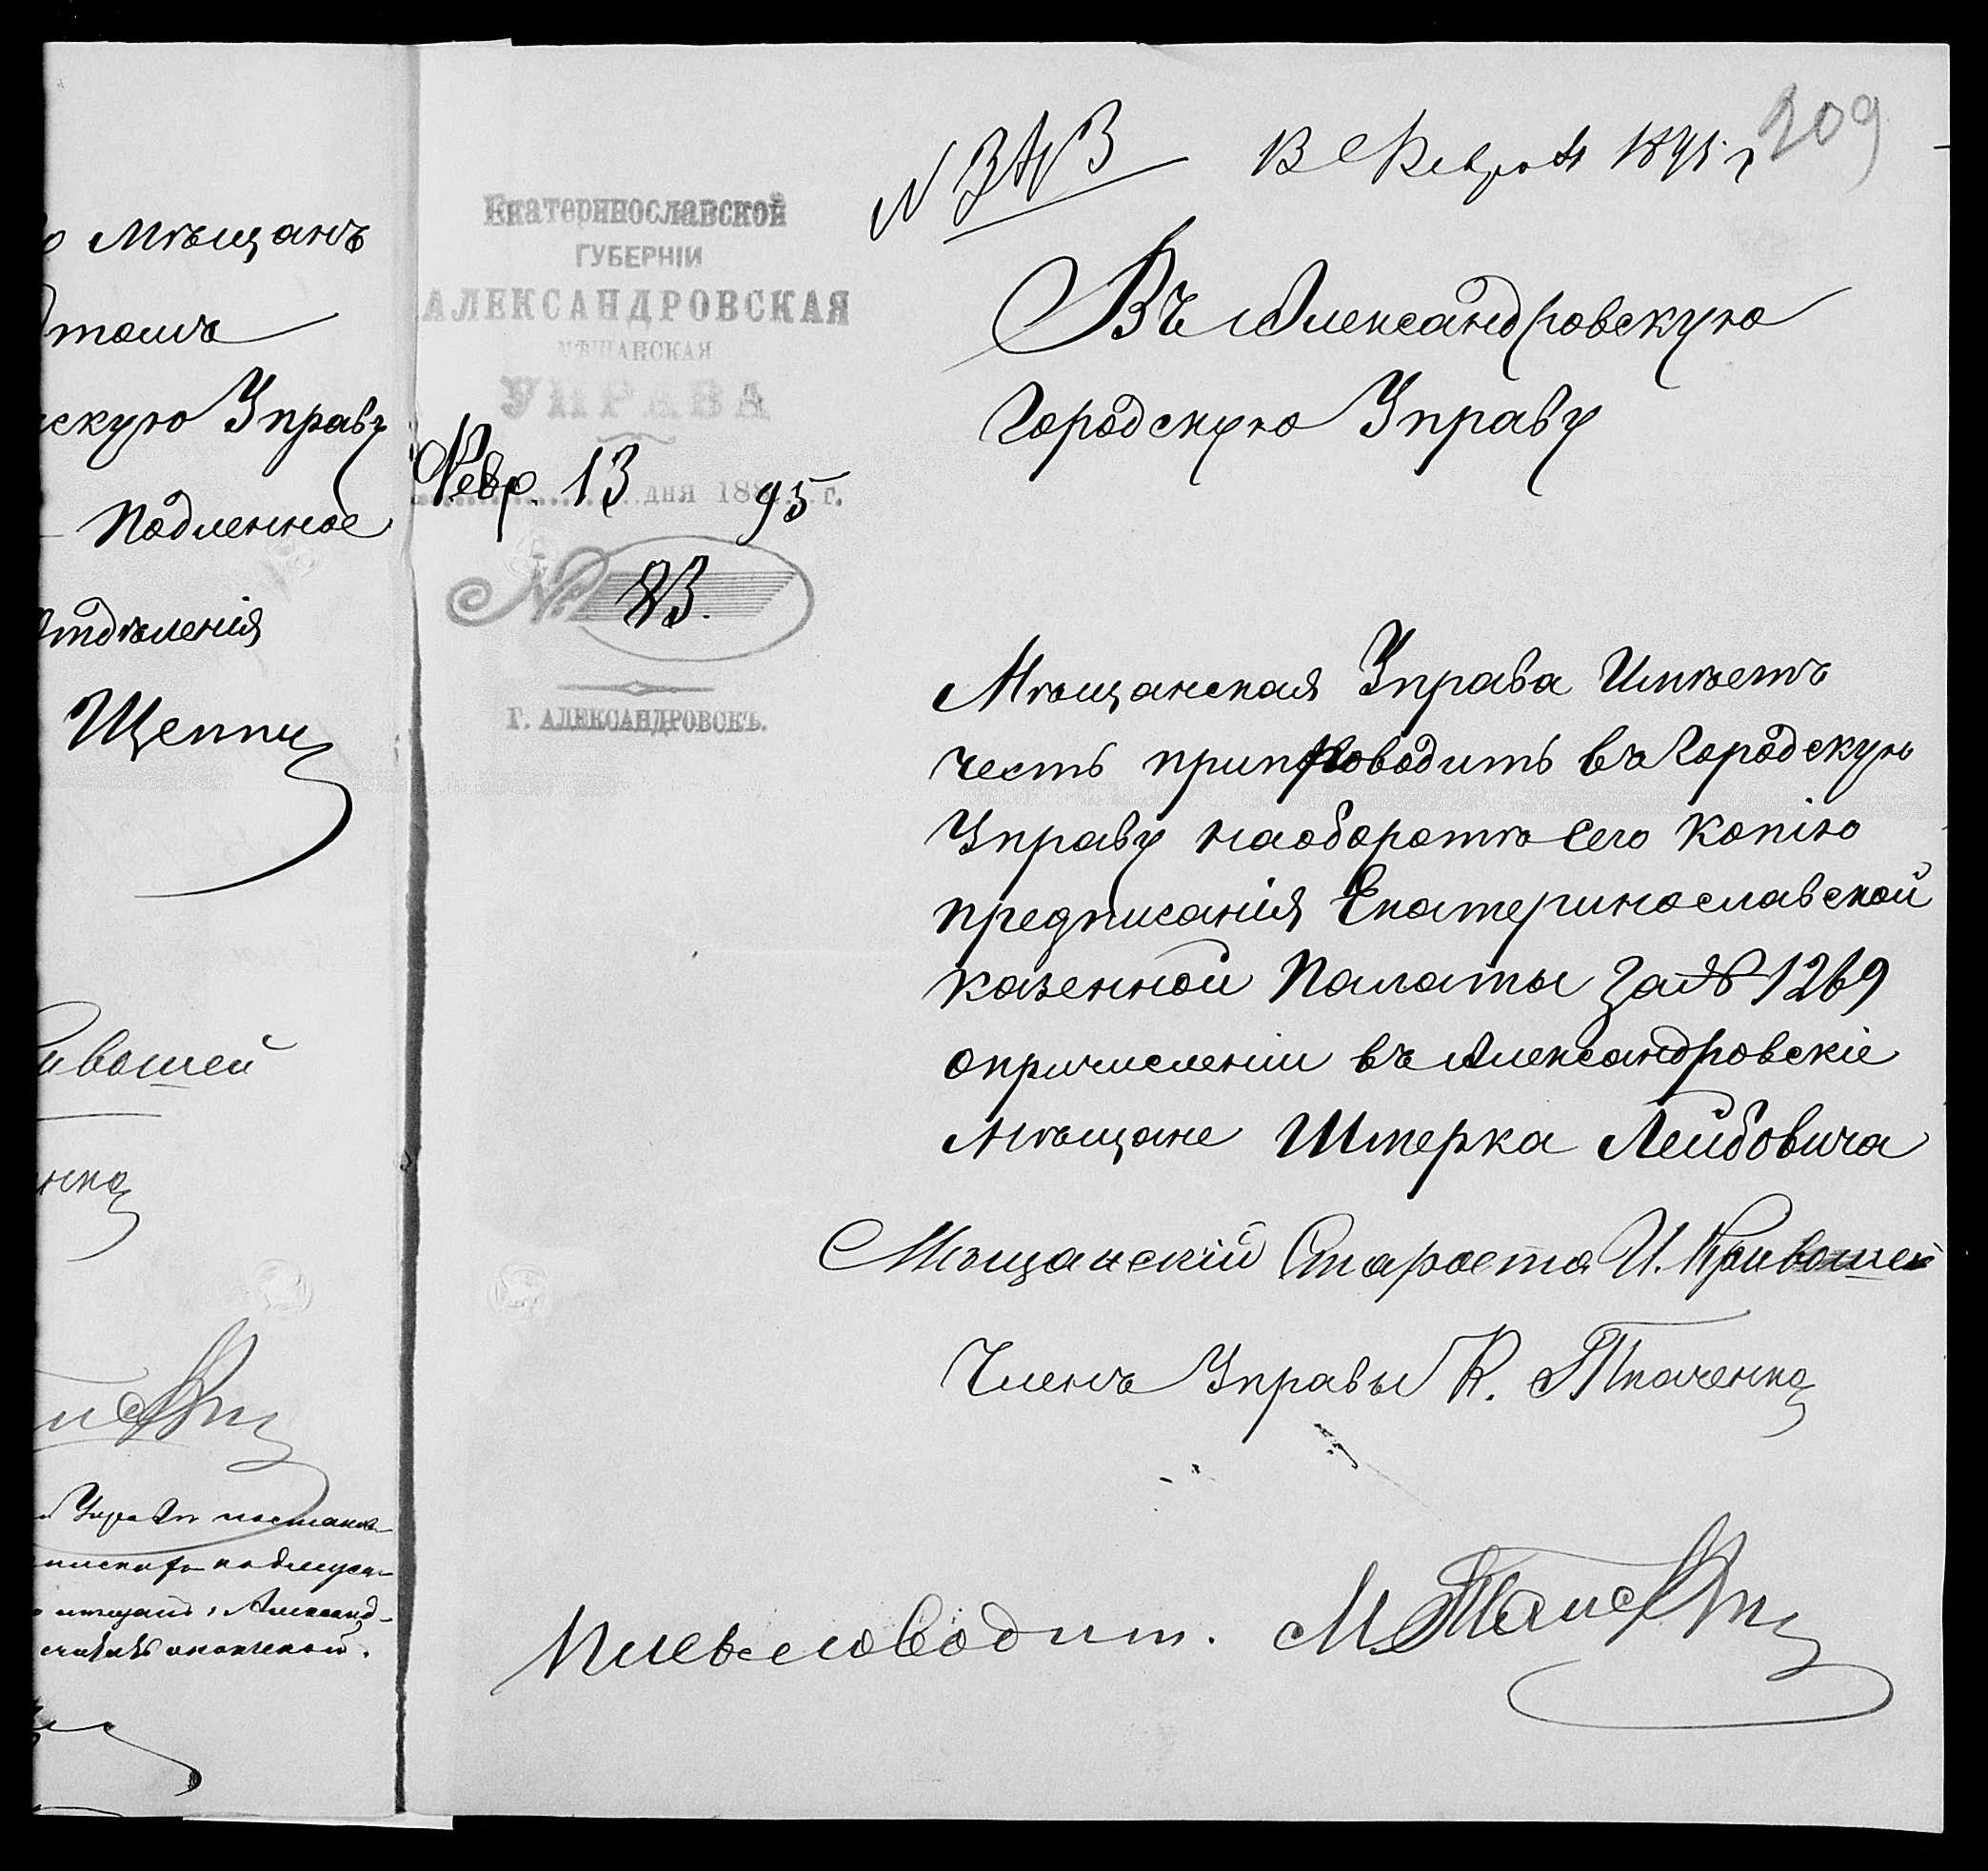 о Мѣщанъ
томъ
скую Управу
Подленное
Отдѣленія
Щепки
ивошей
нко
209
№ 343 13 Февраля 1895 г
Екатеринославской
ГУБЕРНІИ
АЛЕКСАНДРОВСКАЯ
МѢЩАНСКАЯ
УПРАВА
Февр. 13 дня 188 95 г.
№ 83.
Г. АЛЕКСАНДРОВСКЪ.
Въ Александровскую
Городскую Управу
Мѣщанская Управа Имѣетъ
честь припроводить въ Городскую
Управу наоборотѣ сего копію
предписанія Екатеринославской
казенной Палаты за № 1269
опричисленіи въ Александровскіе
мѣщане Штерка Лейбовича
Мѣщанскій Староста И. Кривошей
Членъ Управы К. Ткаченко
Письмоводит.